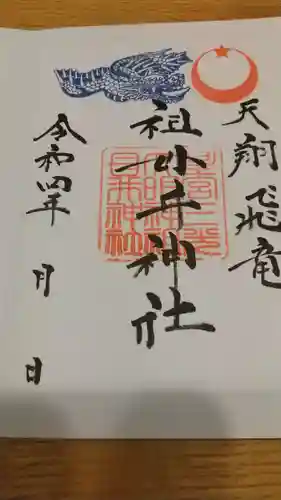 天翔飛竜
祖母井神社
令和四年　月　日